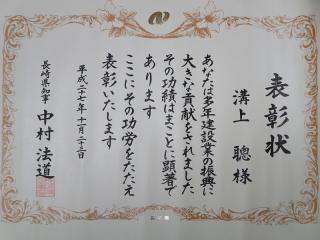 表彰状
溝上 聰 様
あなたは多年建設業の振興に
大きな貢献をされました
その功績はまことに顕著で
あります
ここにその功労をたたえ
表彰いたします
平成二十七年十一月二十三日
長崎県知事 中村法道